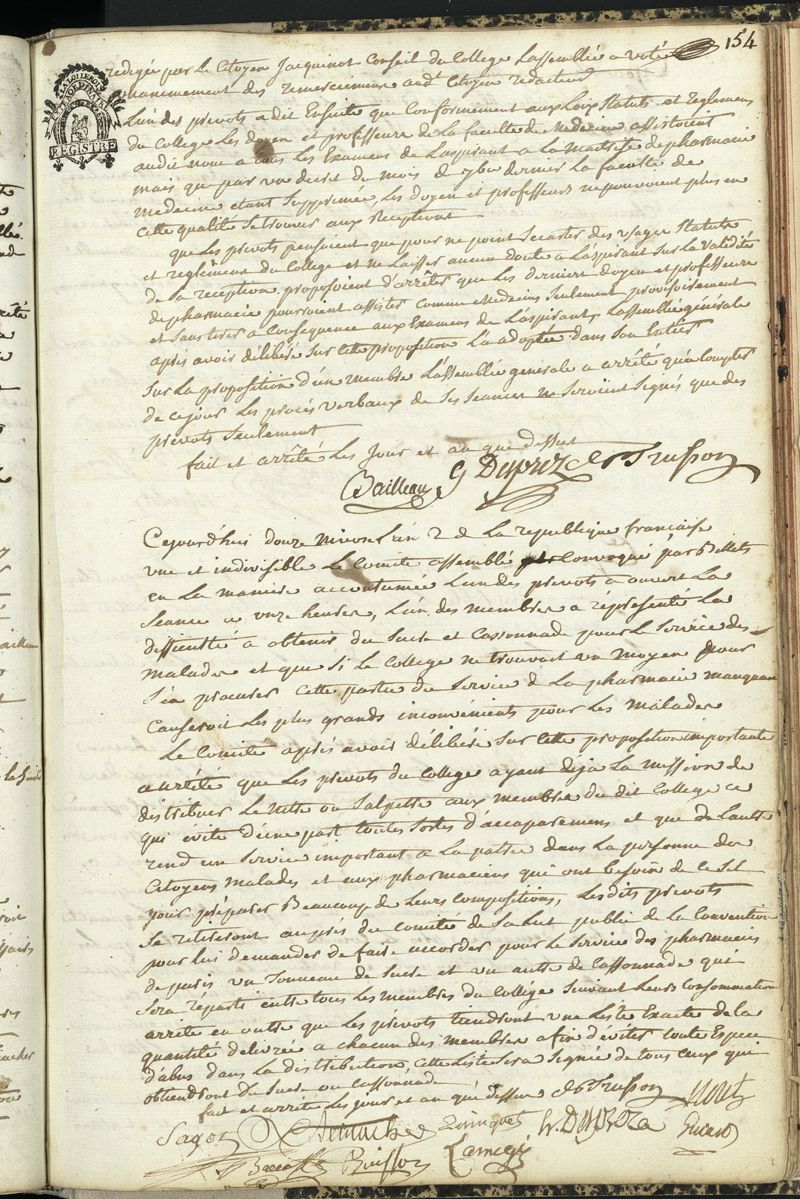 154
REGISTRE
redigée par Le Citoyen Jacquinot Conseil du College Lassemblée a voté
unanimement des remerciemens aud. Citoyen redacteur
L'un des prevots a dit Ensuite que Conformement aux Loix Statuts et Reglemens
du College Les doyen et professeurs de La faculté de Medecine assistoient
au dit nom a tous Les Examens de L'aspirant a La Maitrise de pharmacie
mais que par un decret du mois de 9bre dernier La faculté de
medecine etant Supprimée, Les doyen et professeurs ne pouvoient plus en
Cette qualité Se trouver aux receptions
que Les prevots pensoient que pour ne point Secarter des usages Statuts
et reglemens du College et ne Laisser aucun doute a L'aspirant Sur La validité
de La reception proposoient d'arrêter que Les derniers doyen et professeurs
de pharmacie pourroient assister Comme Medecins Seulement provisoirement
et Sans tirer a Consequence aux Examens de L'aspirant. L'assemblée générale
après avoir délibéré Sur Cette proposition L'a adoptée dans Son Entier
Sur La proposition d'un membre L'assemblée generale a arrêté qu'a Compter
de ce jour Les procès verbaux de Ses Seances ne Seroient Signés que des
prevots Seulement
fait et arrêté Les Jour et an que dessus
Bailleau G Duprez de Trusson
Cejourd'hui douze Nivose L'an 2 de La republique française
une et indivisible Le Comité assemblé Convoqué par Billets
en La maniere accoutumée L'un des prevots a ouvert La
Seance a onze heures, L'un des membres a représenté La
difficulté a obtenir du Sucre et Cassonnade pour Le Service des
malades et que Si Le College ne trouvoit un moyen pour
S'en procurer Cette partie du Service de La pharmacie manquant
Causeroit Les plus grands inconvénients pour Les Malades
Le Comité après avoir délibéré Sur Cette proposition importante
a arrêté que Les prevots du College ayant deja La mission de
distribuer Le Nitre ou Salpetre aux membres du dit College ce
qui evite d'une part toutes Sortes d'accaparemens et que de L'autre
rend un Service important a La patrie dans La personne des
Citoyens malades et aux pharmaciens qui ont besoin de ce Sel
pour préparer Beaucoup de Leurs Compositions, Les dits prevots
Se retireront auprès du Comité de Salut public de La Convention
pour lui demander de faire accorder pour Le Service des pharmacies
de paris un Tonneau de Sucre et un autre de Cassonnade qui
Sera réparti entre tous Les membres du College Suivant Leurs Consommation
arrête en outre que Les prévots tiendront une Liste Exacte de la
quantité delivrée a chacun des membres afin d'éviter toute Espece
d'abus dans La distribution, Cette Liste Sera Signée de tous Ceux qui
obtiendront du Sucre ou Cassonnade
fait et arrêté Les jour et an que dessus de Trusson
Sagot Quinquet G. Duprez
Buisson